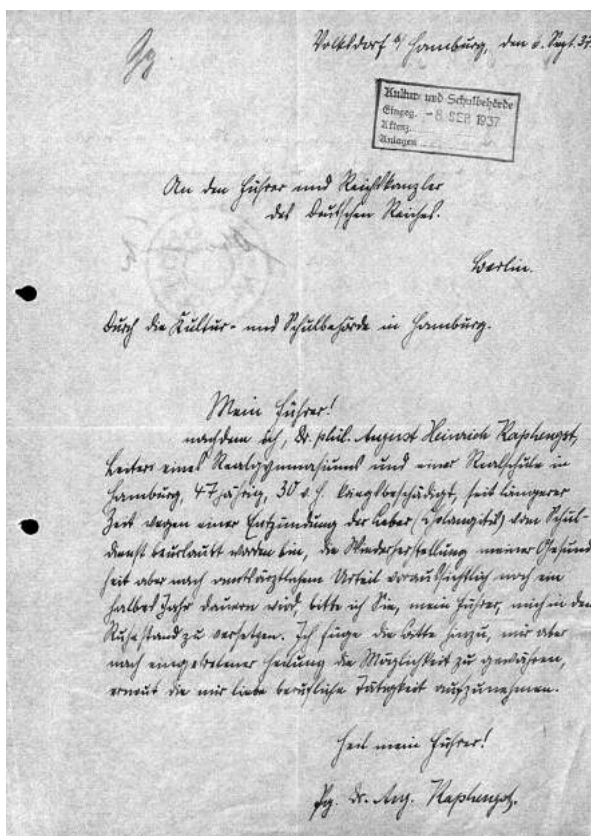 Volksdorf b/ Hamburg, den 6. Sept. 37.
Kultur- und Schulbehörde
Eingeg. - 8. SEP 1937
Aktenz.
Anlagen
An den Führer und Reichskanzler
des Deutschen Reiches.
Berlin.
Durch die Kultur- und Schulbehörde in Hamburg.
Mein Führer!
nachdem ich, Dr. phil. August Heinrich Kaphengst,
Leiter eines Realgymnasiums und einer Realschule in
Hamburg, 47jährig, 30 v. H. kriegsbeschädigt, seit längerer
Zeit wegen einer Entzündung der Leber (Cholangitis) vom Schul-
dienst beurlaubt worden bin, die Wiederherstellung meiner Gesund
heit aber nach amtsärztlichem Urteil voraussichtlich noch ein
halbes Jahr dauern wird, bitte ich Sie, mein Führer, mich in den
Ruhestand zu versetzen. Ich füge die Bitte hinzu, mir aber
nach eingetretener Heilung die Möglichkeit zu gewähren,
erneut die mir liebe berufliche Tätigkeit aufzunehmen.
Heil mein Führer!
Pg. Dr. Aug. Kaphengst.